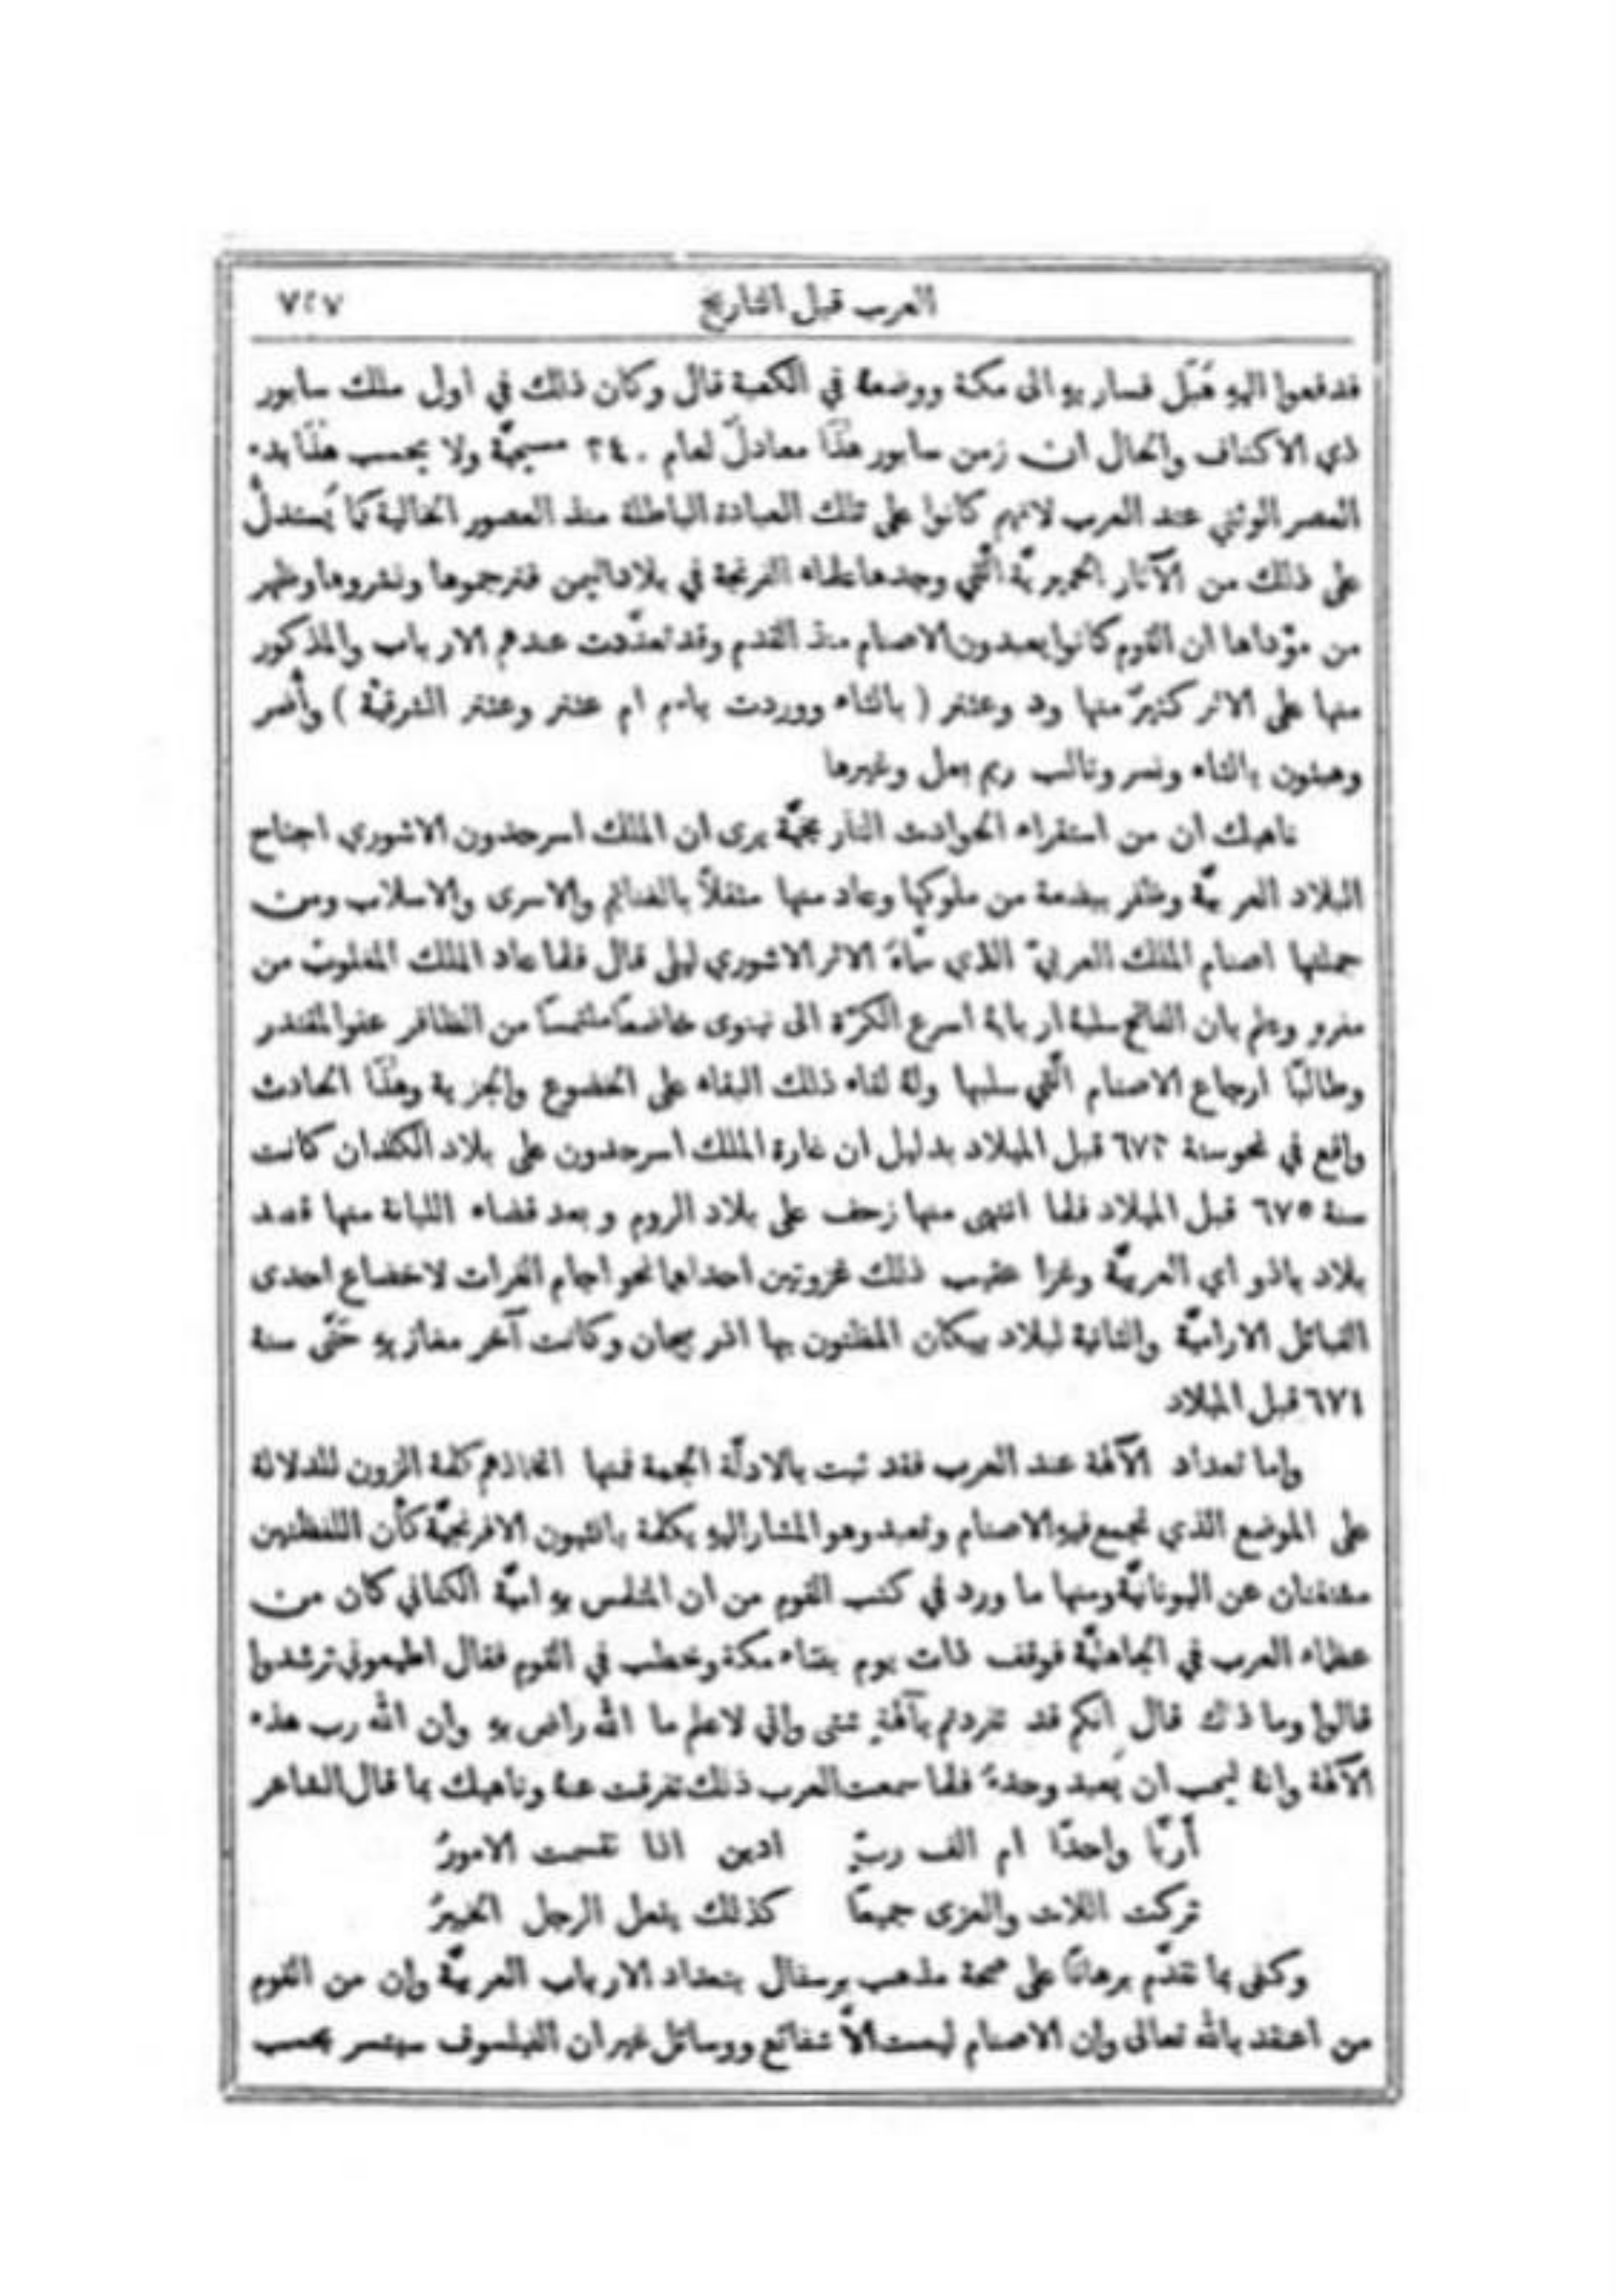 العرب قبل التاريخ ٧٢٧
فدفعوا اليهِ هُبَل فسار بهِ الى مكة ووضعهُ في الكعبة قال وكان ذلك في اول ملك سابور
ذي الاكتاف والحال ان زمن سابور هٰذَا معادلٌ لعام ٢٤٠ مسيحيَّة ولا يحسب هٰذَا بدء
العصر الوثني عند العرب لانهم كانوا على تلك العبادة الباطلة منذ العصور الخالية كما يُستدلُّ
على ذلك من الآثار الحميريَّة الَّتي وجدها علماء الفرنجة في بلاد اليمن فترجموها ونشروها وظهر
من مؤداها ان القوم كانوا يعبدون الاصنام منذ القدم وقد تعدَّدت عندهم الارباب والمذكور
منها على الاثر كثيرٌ منها ود وعثتر ( بالثاء ووردت باسم ام عثتر وعثتر الشرقيَّة )
بالثاء ونسر وتالب ريم بعل وغيرها
ناهيك ان من استقراء الحوادث التاريخيَّة يرى ان الملك اسرحدون الاشوري اجتاح
البلاد العربيَّة وظفر ببضعة من ملوكها وعاد منها مثقلاً بالغنائم والاسرى والاسلاب ومن
جملتها اصنام الملك العربيّ الذي سمَّاهُ الاثر الاشوري ليلى قال فلما عاد الملك المغلوب من
مفرهِ وعلم بان الفاتح سلبهُ اربابهُ اسرع الكرَّة الى نينوى خاضعًا ملتمسًا من الظافر عفو المقتدر
وطالبًا ارجاع الاصنام الَّتي سلبها ولهُ لقاء ذلك البقاء على الخضوع والجزية وهٰذَا الحادث
واقع في نحو سنة ٦٧٢ قبل الميلاد بدليل ان غارة الملك اسرحدون على بلاد الكلدان كانت
سنة ٦٧٥ قبل الميلاد فلما انتهى منها زحف على بلاد الروم وبعد قضاء اللبانة منها قصد
بلاد باذو اي العربيَّة وغزا عقيب ذلك غزوتين احداهما نحو اجام الفرات لاخضاع احدى
القبائل الاراميَّة والثانية لبلاد بيكان المظنون بها اذربيجان وكانت آخر مغازيهِ حَتَّى سنة
٦٧٤ قبل الميلاد
واما تعداد الآلهة عند العرب فقد ثبت بالادلَّة الجمة فمنها اتخاذهم كلمة الزون للدلالة
على الموضع الذي تجمع فيهِ الاصنام وتعبد وهو المشار اليهِ بكلمة بانثيون الافرنجيَّة كأن اللفظتين
مشتقتان عن اليونانيَّة ومنها ما ورد في كتب القوم من ان المتلمس بن اميَّة الكناني كان من
عظماء العرب في الجاهليَّة فوقف ذات يوم بفناء مكة وخطب في القوم فقال اطيعوني ترشدوا
قالوا وما ذلك قال إنكم قد تفردتم بآلهةٍ شتى واني لاعلم ما الله راضٍ بهِ وان الله رب هذه
الآلهة وانهُ ليحب ان يُعبد وحدهُ فلما سمعت العرب ذلك تفرقت عنهُ وناهيك بما قال الشاعر
أربًّا واحدًا ام الف ربٍّ ادين اذا تقسمت الامورُ
تركت اللات والعزى جميعًا كذلك يفعل الرجل الخبيرُ
وكفى بما تقدَّم برهانًا على صحة مذهب برسفال بتعداد الارباب العربيَّة وان من القوم
من اعتقد بالله تعالى وان الاصنام ليست الَّا شفائع ووسائل غير ان الفيلسوف سبنسر يحسب